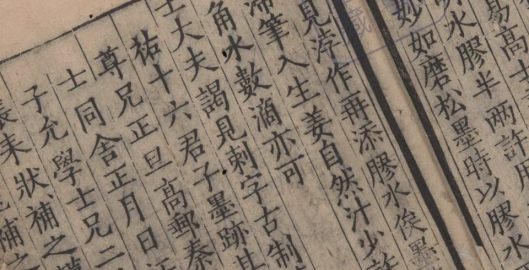 易高士
水膠半兩許用
妙如磨松墨時以膠水
見浡作再添膠水俟墨
滯筆入生姜自然汁少許
角水數滴亦可
士大夫謁見刺字古制
祐十六君子墨跡其
尊兄正旦高郵秦
士同舍正月日江
子允學士兄二
張耒狀補之
補之